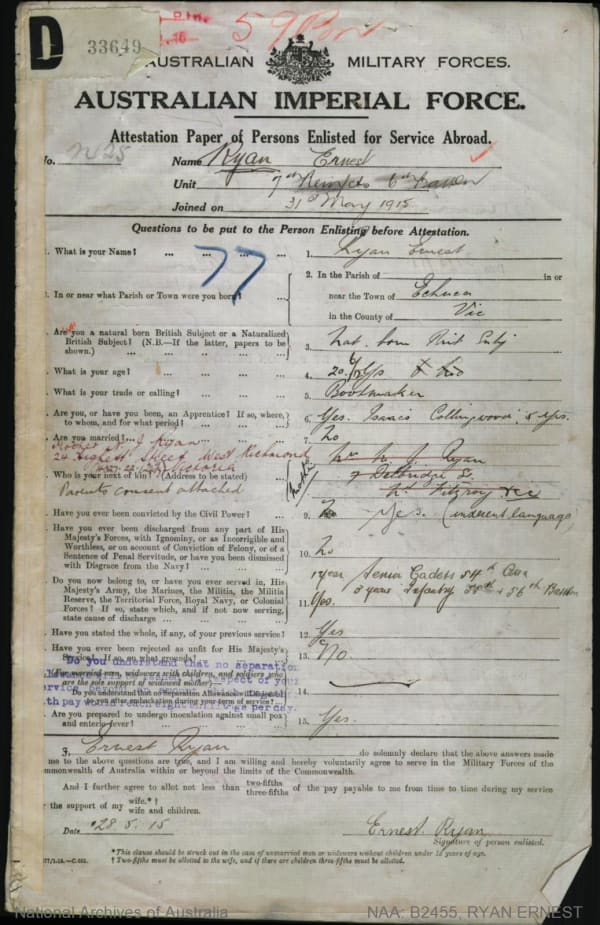 59
D
33649
AUSTRALIAN MILITARY FORCES.
AUSTRALIAN IMPERIAL FORCE.
Attestation Paper of Persons Enlisted for Service Abroad.
No. 2425 Name Ryan Ernest
Unit 7th Reinfcts 6th Battn
Joined on 31st May 1915
Questions to be put to the Person Enlisting before Attestation.
77
. What is your Name? ... ... ... ... 1. Ryan Ernest
2. In the Parish of in or
. In or near what Parish or Town were you born? ... near the Town of Echuca
in the County of Vic
. Are you a natural born British Subject or a Naturalized
British Subject? (N.B.—If the latter, papers to be
shown.) ... ... ... ... 3. Nat. born Brit Subj
. What is your age? ... ... ... ... 4. 20
. What is your trade or calling? ... ... ... 5. Bootmaker
. Are you, or have you been, an Apprentice? If so, where,
to whom, and for what period? ... ... ... 6. Yes. Isaacs Collingwood, 5 yrs.
. Are you married? ... ... 7. No
Mother N. J Ryan
24 Highett Street West Richmond
Victoria
. Who is your next of kin? (Address to be stated) Mother Mrs N. J. Ryan
7 Delbridge St
Nth Fitzroy Vic
Parents consent attached
. Have you ever been convicted by the Civil Power? ... 9. No Yes. (indecent language)
. Have you ever been discharged from any part of His
Majesty's Forces, with Ignominy, or as Incorrigible and
Worthless, or on account of Conviction of Felony, or of a
Sentence of Penal Servitude, or have you been dismissed
with Disgrace from the Navy? ... ... 10. No
. Do you now belong to, or have you ever served in, His
Majesty's Army, the Marines, the Militia, the Militia
Reserve, the Territorial Force, Royal Navy, or Colonial
Forces? If so, state which, and if not now serving,
state cause of discharge ... ... ...
1 year Senior Cadets 54th Coy
11. Yes. 3 years Infantry 56th Battn
. Have you stated the whole, if any, of your previous service? 12. Yes
. Have you ever been rejected as unfit for His Majesty's
Service? If so, on what grounds? 13. No
Do you understand that no separation
(For married men, widowers with children, and soldiers who
are the sole support of widowed mother)—
Do you understand that no Separation Allowance will be
after embarkation during your term of service? 14.
. Are you prepared to undergo inoculation against small pox
and enteric fever? ... ... ... 15. Yes.
I, Ernest Ryan do solemnly declare that the above answers made
me to the above questions are true, and I am willing and hereby voluntarily agree to serve in the Military Forces of the
mmonwealth of Australia within or beyond the limits of the Commonwealth.
And I further agree to allot not less than two-fifths three-fifths of the pay payable to me from time to time during my service
r the support of my wife.*† wife and children.
Date 28. 5. 15 Ernest Ryan
Signature of person enlisted.
*This clause should be struck out in the case of unmarried men or widowers without children under 18 years of age.
† Two-fifths must be allotted to the wife, and if there are children three-fifths must be allotted.
National Archives of Australia NAA: B2455, RYAN ERNEST